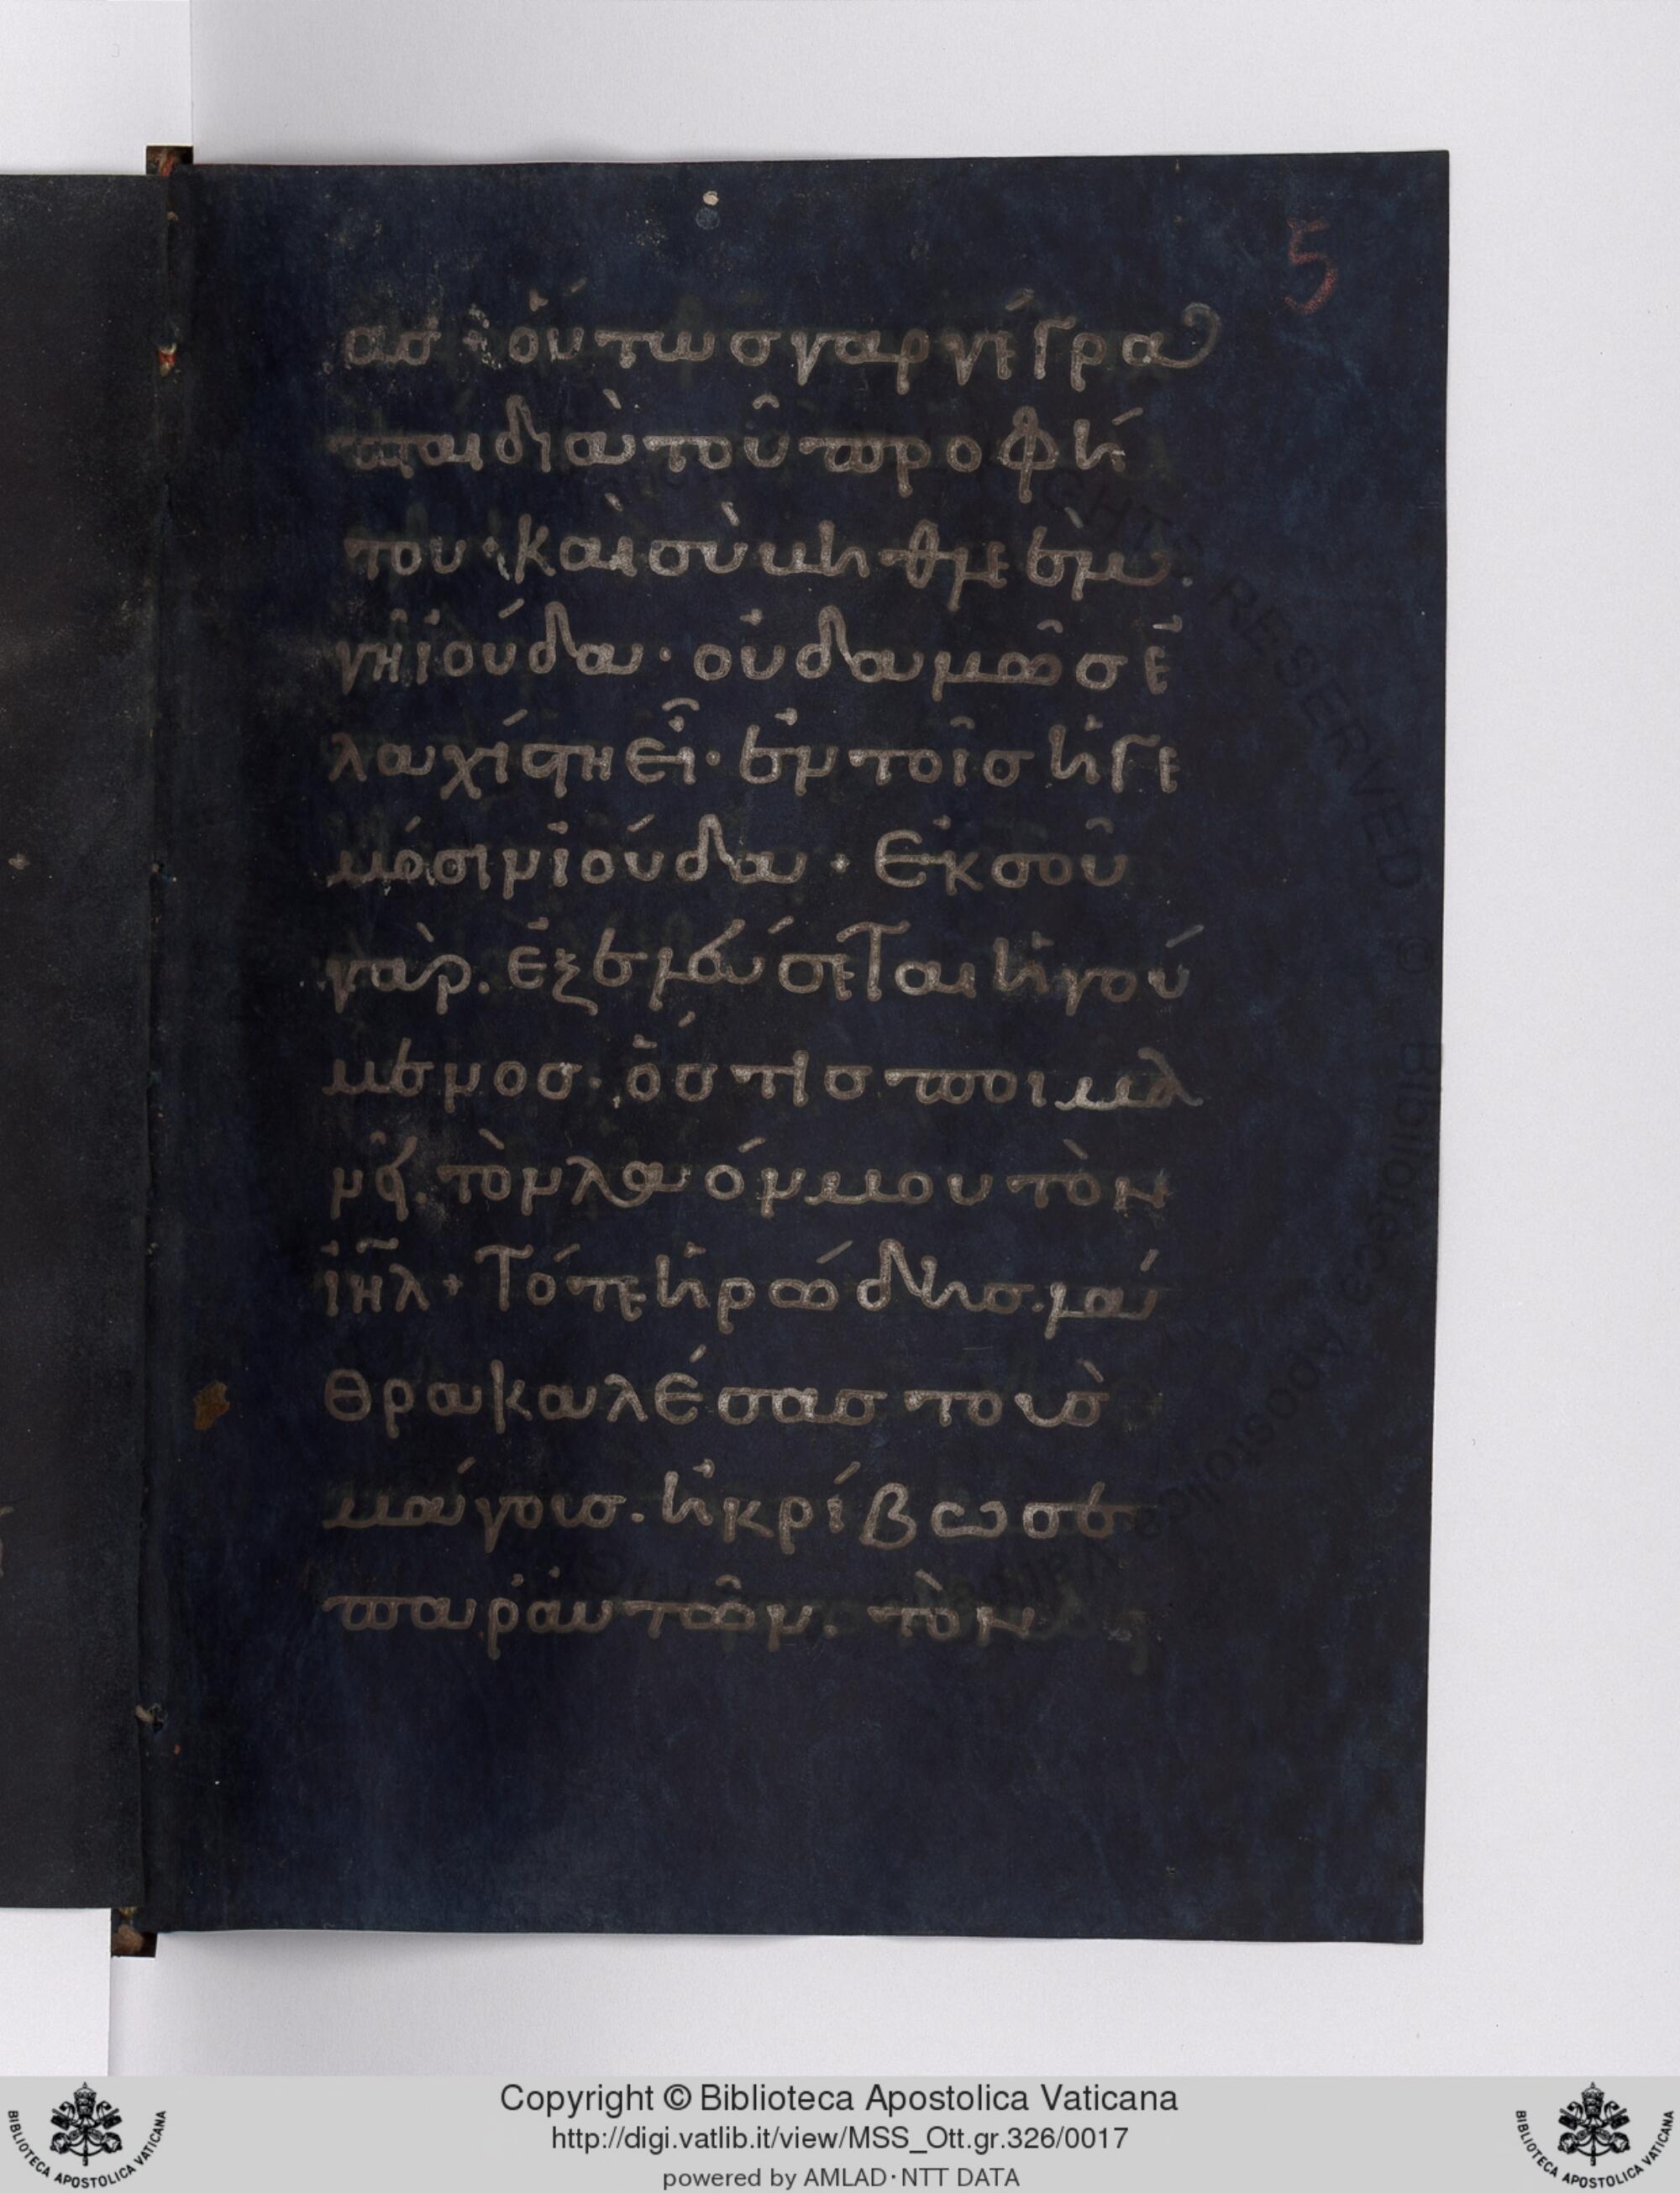 5
ασ· οὕτωσ γὰρ γέγρα
πται διὰ τοῦ προφή
του· καὶ σὺ βηθλεὲμ
γῆ ἰούδα· οὐδαμῶσ ἐ
λαχίστη εἶ· ἐν τοῖσ ἡγε
μόσιν ἰούδα· ἐκ σοῦ
γὰρ. ἐξελεύσεται ἡγού
μενοσ· ὅστισ ποιμα
νεῖ. τὸν λαόν μου τὸν
ἰη̅λ· Τότε ἡρώδησ. λά
θρα καλέσασ τοὺσ
μάγουσ. ἠκρίβωσε
παρ' αὐτῶν. τὸν
Copyright © Biblioteca Apostolica Vaticana
http://digi.vatlib.it/view/MSS_Ott.gr.326/0017
powered by AMLAD·NTT DATA
BIBLIOTECA APOSTOLICA VATICANA
BIBLIOTECA APOSTOLICA VATICANA